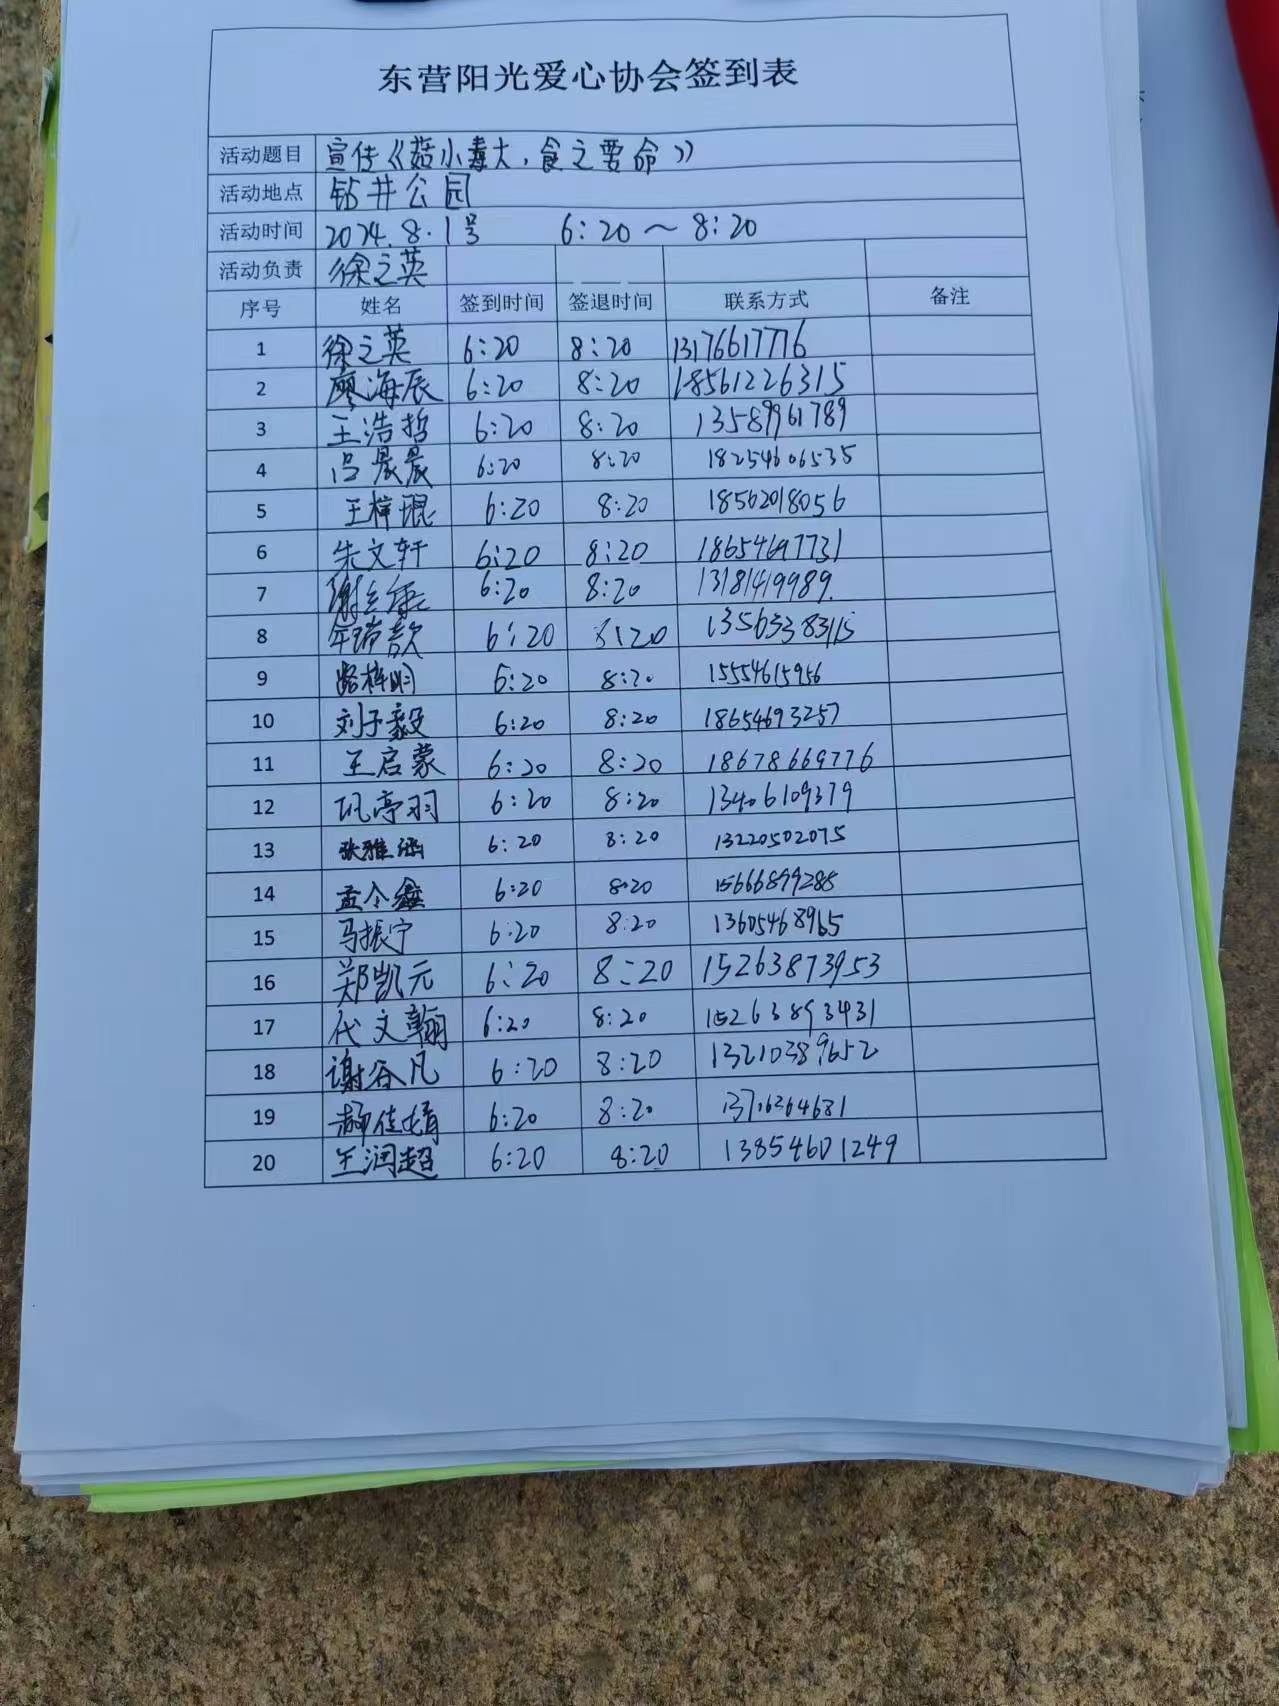 东营阳光爱心协会签到表
活动题目 宣传《菇小毒大，食之要命》
活动地点 钻井公园
活动时间 2024.8.1号 6:20～8:20
活动负责 徐之英
序号 姓名 签到时间 签退时间 联系方式 备注
1 徐之英 6:20 8:20 13176617776
2 廖海辰 6:20 8:20 18561226315
3 王浩哲 6:20 8:20 13589961789
4 吕晨晨 6:20 8:20 18254606535
5 王梓琨 6:20 8:20 18562018056
6 朱文轩 6:20 8:20 18654697731
7 6:20 8:20 13181419989
8 6:20 8:20 13563383115
9 路梓明 6:20 8:20 15554615956
10 刘子毅 6:20 8:20 18654693257
11 王启蒙 6:20 8:20 18678669776
12 巩亭羽 6:20 8:20 13406109379
13 张雅涵 6:20 8:20 13220502075
14 孟令鑫 6:20 8:20 15666899285
15 马振宁 6:20 8:20 13605468965
16 郑凯元 6:20 8:20 15263873953
17 代文翰 6:20 8:20 15263893431
18 谢谷凡 6:20 8:20 13210389652
19 6:20 8:20
20 王润超 6:20 8:20 13854601249